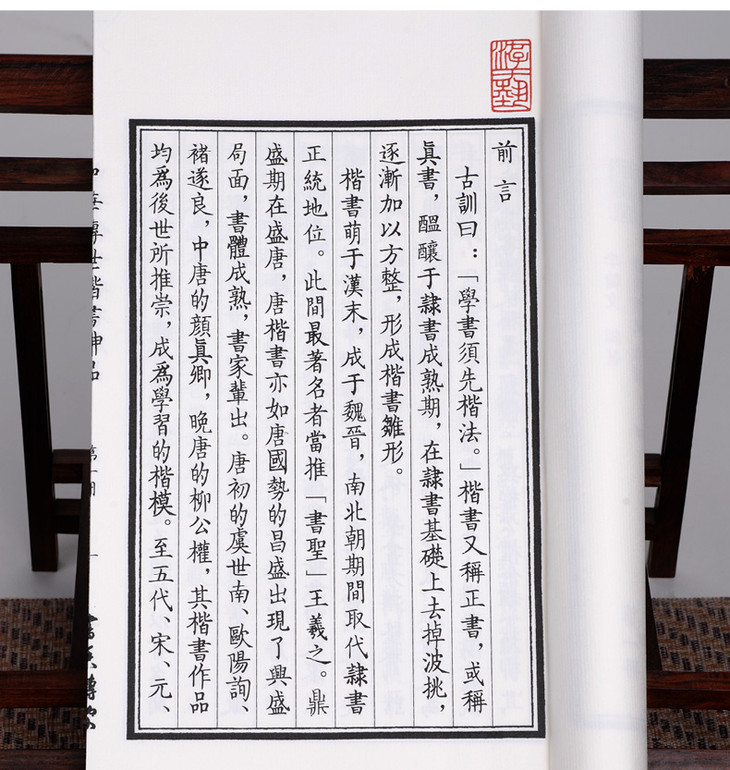 前言
古訓曰：「學書須先楷法。」楷書又稱正書，或稱
真書，醞釀于隸書成熟期，在隸書基礎上去掉波挑，
逐漸加以方整，形成楷書雛形。
楷書萌于漢末，成于魏晉，南北朝期間取代隸書
正統地位。此間最著名者當推「書聖」王羲之。鼎
盛期在盛唐，唐楷書亦如唐國勢的昌盛出現了興盛
局面，書體成熟，書家輩出。唐初的虞世南、歐陽詢、
褚遂良，中唐的顏真卿，晚唐的柳公權，其楷書作品
均爲後世所推崇，成爲學習的楷模。至五代、宋、元、